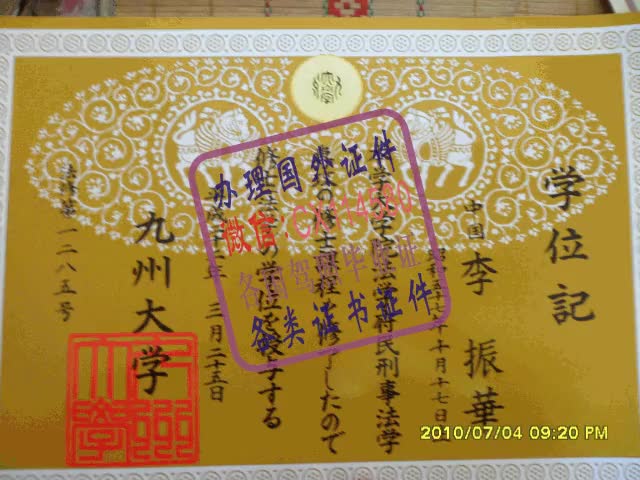 学位記
中国 李 振華
年十月十七日
学大学院法学府民刑事法学
の修士課程を修了したので
の学位を授与する
平成二十二年 三月二十五日
九州大学
法修第一二八五号
办理国外证件
微信:
各国驾照毕业证
各类证书证件
2010/07/04 09:20 PM